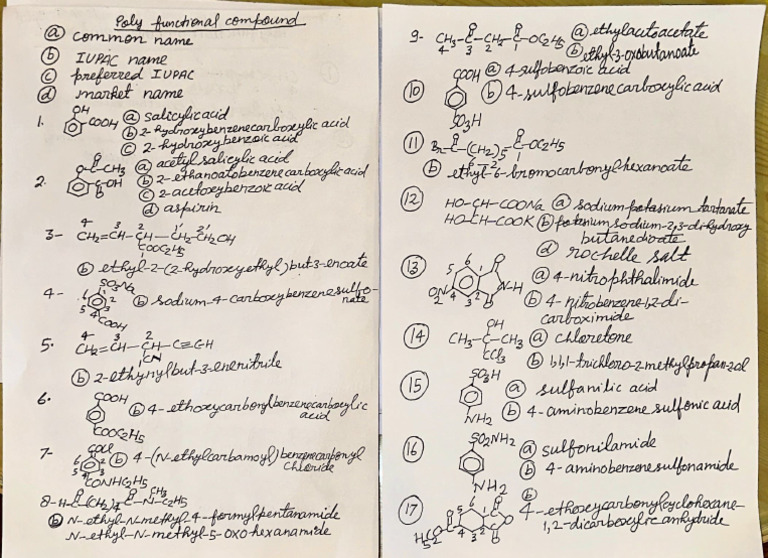 Poly functional compound
(a) common name
(b) IUPAC name
(c) preferred IUPAC
(d) market name
1. OH COOH (a) salicylic acid
(b) 2-hydroxybenzenecarboxylic acid
(c) 2-hydroxybenzoic acid
2. O-C-CH3 O C-OH O (a) acetyl salicylic acid
(b) 2-ethanoatobenzenecarboxylic acid
(c) 2-acetoxybenzoic acid
(d) aspirin
3- CH2=CH-CH-CH2-CH2OH 4 3 2 1' 2'
COOC2H5
(b) ethyl-2-(2-hydroxyethyl)but-3-enoate
4- SO3Na COOH 6 1 2 5 4 3 (b) sodium-4-carboxybenzenesulfo-
nate
5. CH2=CH-CH-C≡CH 4 3 2
CN
(b) 2-ethynylbut-3-enenitrile
6. COOH COOC2H5 (b) 4-ethoxycarbonylbenzenecarboxylic
acid
7- COCl CONHC2H5 6 1 2 5 4 3 (b) 4-(N-ethylcarbamoyl)benzenecarbonyl
chloride
8- H-C-(CH2)4-C-N-C2H5 O O CH3
(b) N-ethyl-N-methyl-4-formylpentanamide
N-ethyl-N-methyl-5-oxohexanamide
9- CH3-C-CH2-C-OC2H5 O O 4 3 2 1 (a) ethylacetoacetate
(b) ethyl-3-oxobutanoate
(10) COOH SO3H (a) 4-sulfobenzoic acid
(b) 4-sulfobenzenecarboxylic acid
(11) Br-C-(CH2)5-C-OC2H5 O O 6-2 1
(b) ethyl-6-bromocarbonylhexanoate
(12) HO-CH-COONa (a) sodium-potasium tartarate
HO-CH-COOK (b) potasium sodium-2,3-dihydroxy
butanedioate
(d) rochelle salt
(13) O2N N-H O O 6 5 4 3 2 1 (a) 4-nitrophthalimide
(b) 4-nitrobenzene-1,2-di-
carboximide
(14) OH CH3-C-CH3 CCl3 (a) chloretone
(b) 1,1,1-trichloro-2-methylpropan-2ol
(15) SO3H NH2 (a) sulfanilic acid
(b) 4-aminobenzene sulfonic acid
(16) SO2NH2 NH2 (a) sulfonilamide
(b) 4-aminobenzenesulfonamide
(17) H5C2O-C O O O O 6 5 4 3 2 1 (b) 4-ethoxycarbonylcyclohexane-
1,2-dicarboxylic anhydride